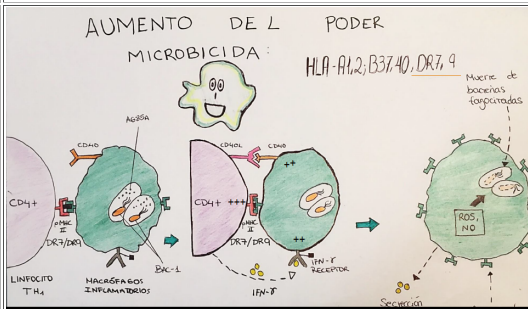 AUMENTO DEL PODER
MICROBICIDA:
HLA-A1,2; B37,40, DR7, 9
Muerte de
bacterias
fagocitadas
AG85A
CD40
CD4+
pMHC
II
DR7/DR9
BAC-1
LINFOCITO
TH1
MACRÓFAGOS
INFLAMATORIOS
CD40L
CD40
++
CD4+
+++
pMHC
II
DR7/DR9
++
IFN-γ
RECEPTOR
IFN-γ
ROS,
NO
Secreción